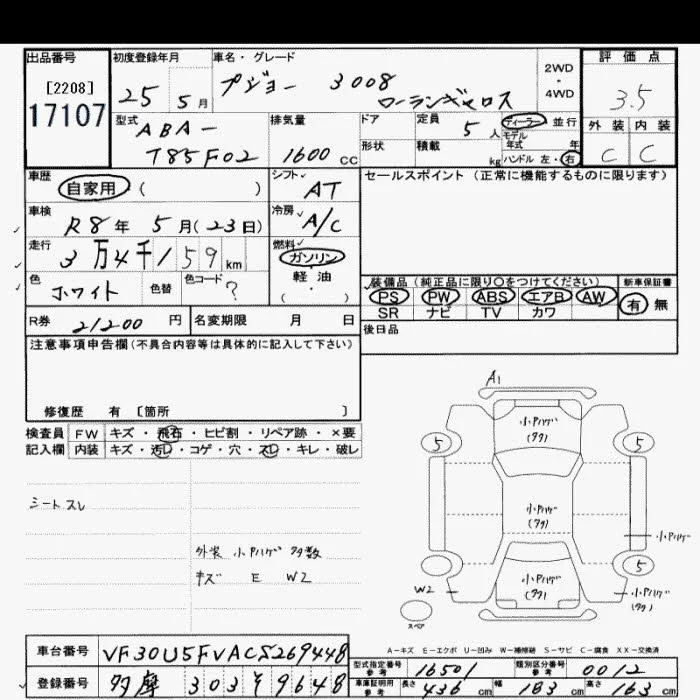 出品番号
[2208]
17107
初度登録年月
25 5月
車名・グレード
プジョー 3008
ローランギャロス
2WD
・
4WD
評価点
3.5
外装 内装
C C
型式
ABA-
T85F02
排気量
1600 cc
ドア
定員 5人
形状
積載 kg
ディーラー 並行
モデル年式 年
ハンドル 左・右
車歴
自家用 ( )
シフト
AT
車検
R8年 5月(23日)
冷房
A/C
走行
3万4千159km
燃料
ガソリン
軽・油
( ・ )
色
ホワイト
色替
色コード
?
R券
21200 円
名変期限 月 日
セールスポイント (正常に機能するものに限ります)
装備品 (純正品に限り○をつけてください)
PS PW ABS エアB AW
SR ナビ TV カワ
新車保証書
有 無
後日品
注意事項申告欄(不具合内容等は具体的に記入して下さい)
修復歴 有 〔箇所 〕
検査員
記入欄
FW キズ・飛石・ヒビ割・リペア跡・×要
内装 キズ・汚レ・コゲ・穴・スレ・キレ・破レ
シートスレ
外装 小Pハゲ 多数
キズ E W2
A1
小Pハゲ
(タタ)
5 5
小Pハゲ
(タタ)
小Pハゲ
小Pハゲ
(タタ)
5
W2
小Pハゲ
(タタ)
スペア
A-キズ E-エクボ U-凹み W-補修跡 S-サビ C-腐食 XX-交換済
車台番号 VF30U5FVACS269448
登録番号 多摩 303 そ 9648
型式指定番号
参考
16501
類別区分番号
参考
0012
車庫証明用
参考
長さ 436 cm 幅 183 cm 高さ 163 cm